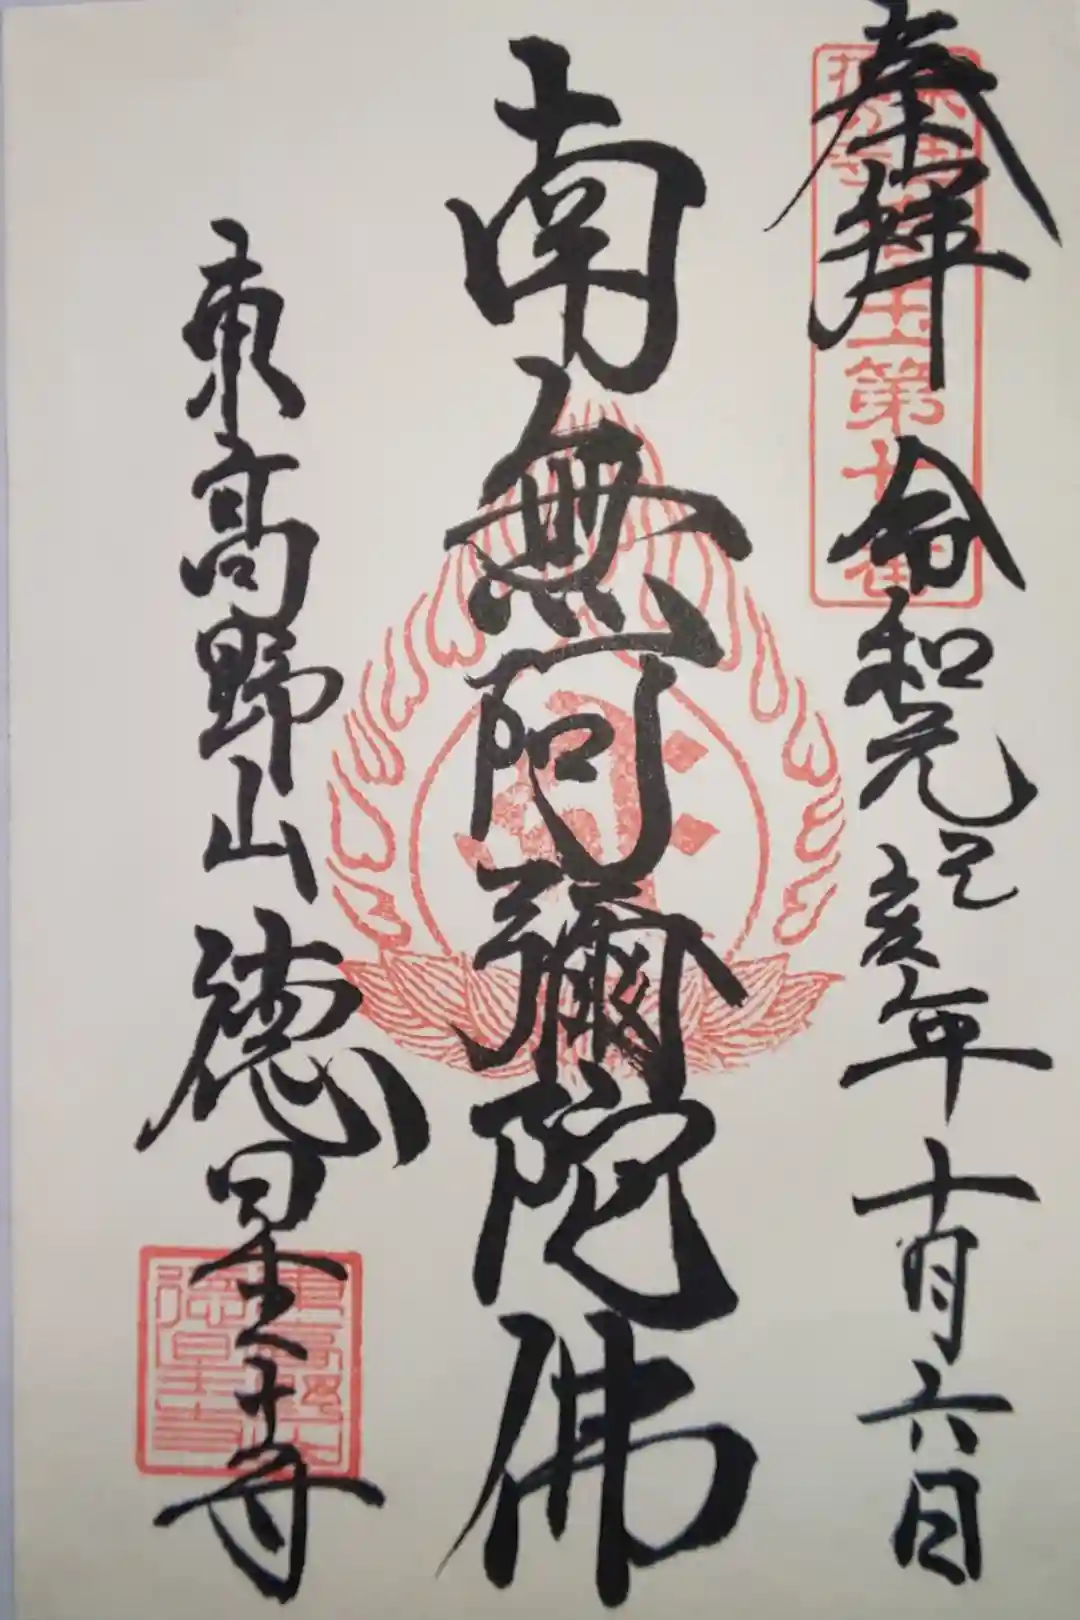 奉拝
令和元己亥年十月六日
南無阿彌陀佛
東高野山
徳星寺
東高野山
徳星寺